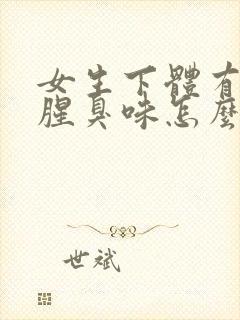 女生下體有
腥臭味怎麼
世斌